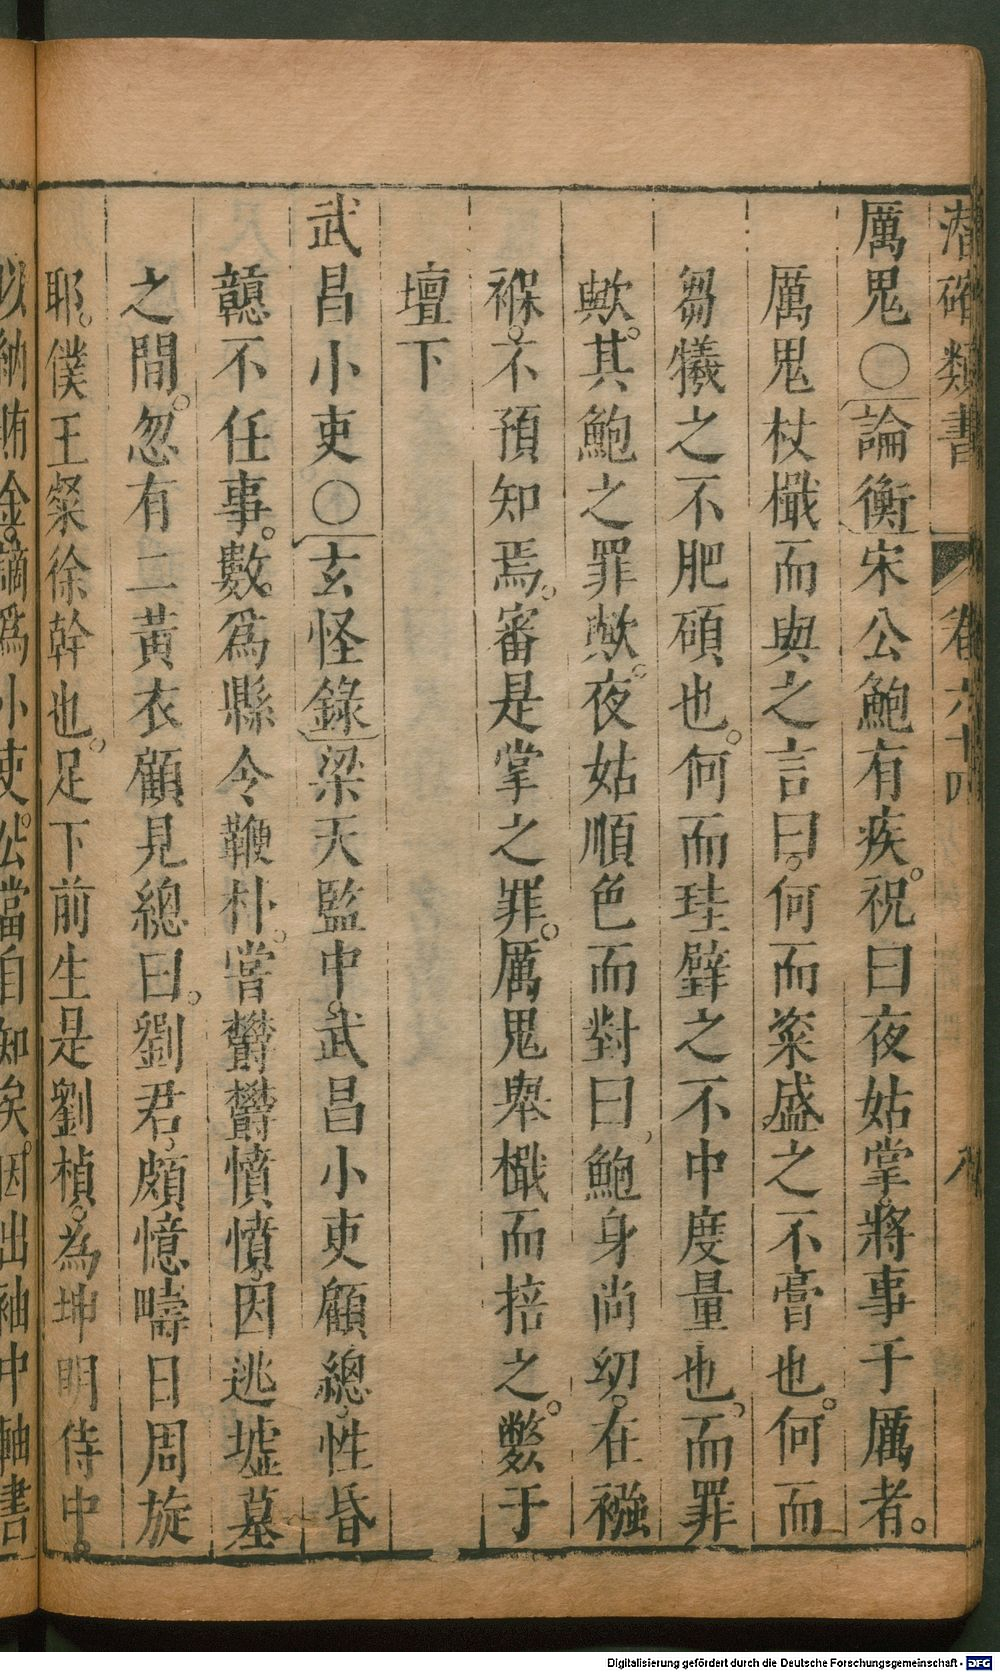 潜確類書 卷六十四 八
厲鬼○論衡宋公鮑有疾。祝曰夜姑掌。將事于厲者。
厲鬼杖檝而與之言曰。何而粢盛之不膏也。何而
芻犧之不肥碩也。何而珪璧之不中度量也。而罪
歟。其鮑之罪歟。夜姑順色而對曰。鮑身尚幼。在襁
褓。不預知焉。審是掌之罪。厲鬼舉檝而掊之。斃于
壇下
武昌小吏○玄怪錄梁天監中。武昌小吏顧總。性昏
戇不任事。數。爲縣令鞭朴。嘗鬱鬱憤憤。因逃墟墓
之間。忽有二黃衣顧見總曰。劉君。頗憶疇日周旋
耶。僕王粲徐幹也。足下前生是劉楨。為坤明侍中。
以納賄金。謫爲小吏。公當自知矣。因出袖中軸書
Digitalisierung gefördert durch die Deutsche Forschungsgemeinschaft - DFG